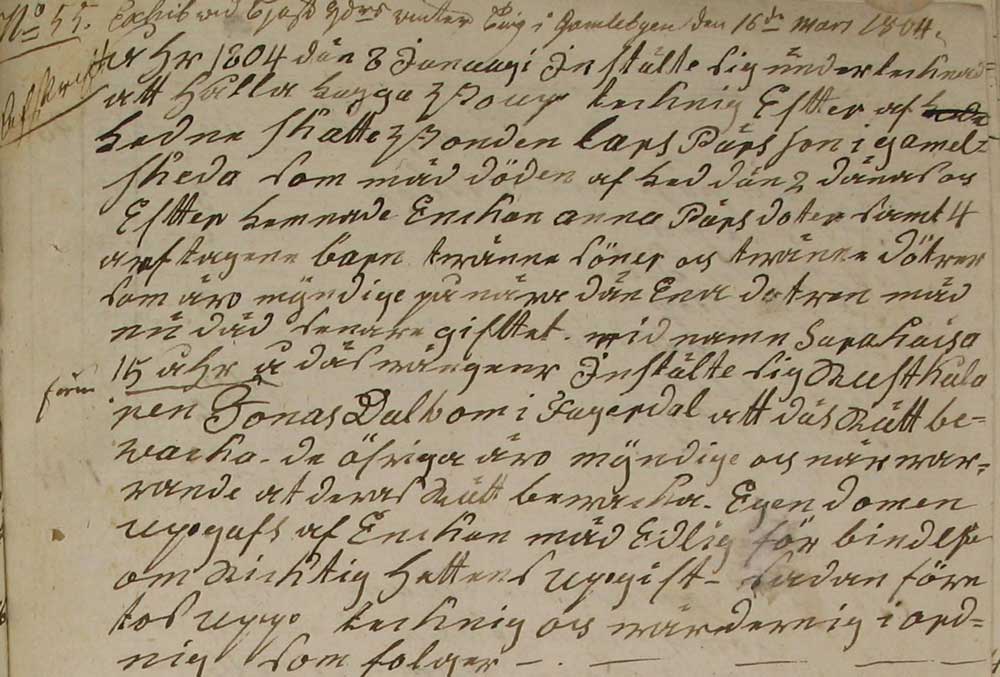 No 55. Exhib vid Tjust Hdrs vinter Ting i Gamlebyen den 16de Mars 1804.
Afskrift
Ahr 1804 dän 8 Januagi Instälte sig undertecknad
att Hålla Bogga Uppteckning Efter af
Ledne Skatte Bonden Lars Pärsson i gamel=
skeda som mäd döden af Led dän 2 dänas och
Efter Lemnade Enckan anna Pärsdoter samt 4
arftagene barn twänne söner och twänne dötrer
som äro myndige på nära dän Ena dotren mäd
nu dåd senare giftet. wid namn Sara kaisa
15 ahr a däs wängner Instälte sig Rusthåla
ren Jonas Dalbom i Fagerdal att däs Rätt be=
wacka - de öfriga äro myndige och närwar=
rande at deras Rätt bewacka. Egendomen
upgafs af Enckan mäd Edlig för bindelse
om Ricktig Hettens upgift - sadan före
tos uppteckning och wärdernig i ord=
nig som folger -.